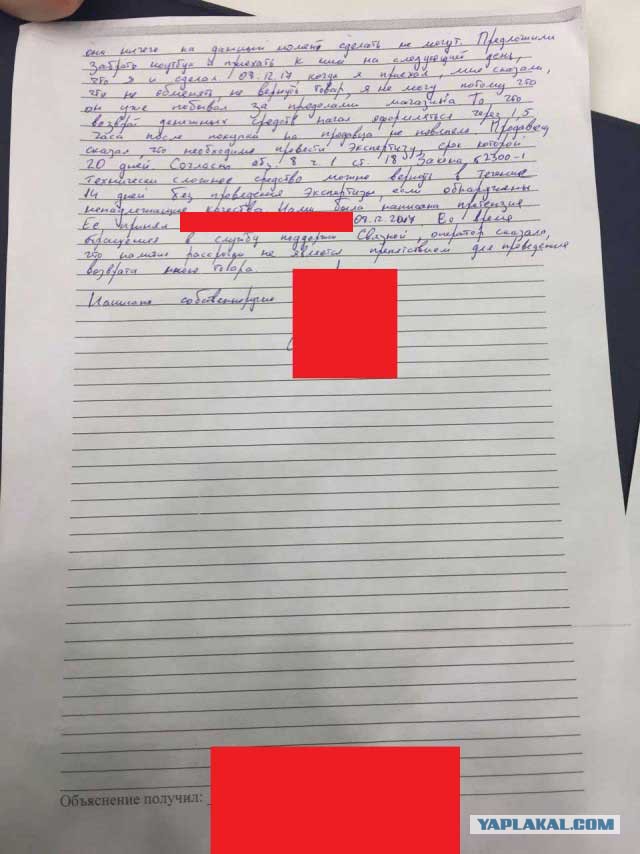 они ничего на данный момент сделать не могут. Предложили
забрать ноутбук и приехать к ним на следующий день,
что я и сделал 09.12.17, когда я приехал, мне сказали,
что не обменять не вернуть товар, я не могу потому что
он уже побывал за пределами магазина. То что
возврат денежных средств начал оформляться через 1,5
часа после покупки на продавца не повлияло. Продавец
сказал что необходимо провести экспертизу, срок которой
20 дней. Согласно абз. 8 ч 1 ст. 18 Закона 2300-1
технически сложное средство можно вернуть в течение
14 дней без проведения экспертизы, если обнаружены
ненадлежащие качества. Нами была написана претензия
Ее принял 09.12.2017 Во время
обращения в службу поддержки Связной, оператор сказала,
что рассрочка не является препятствием для проведения
возврата мною товара.
Написано собственноручно
Объяснение получил:
YAPLAKAL.COM